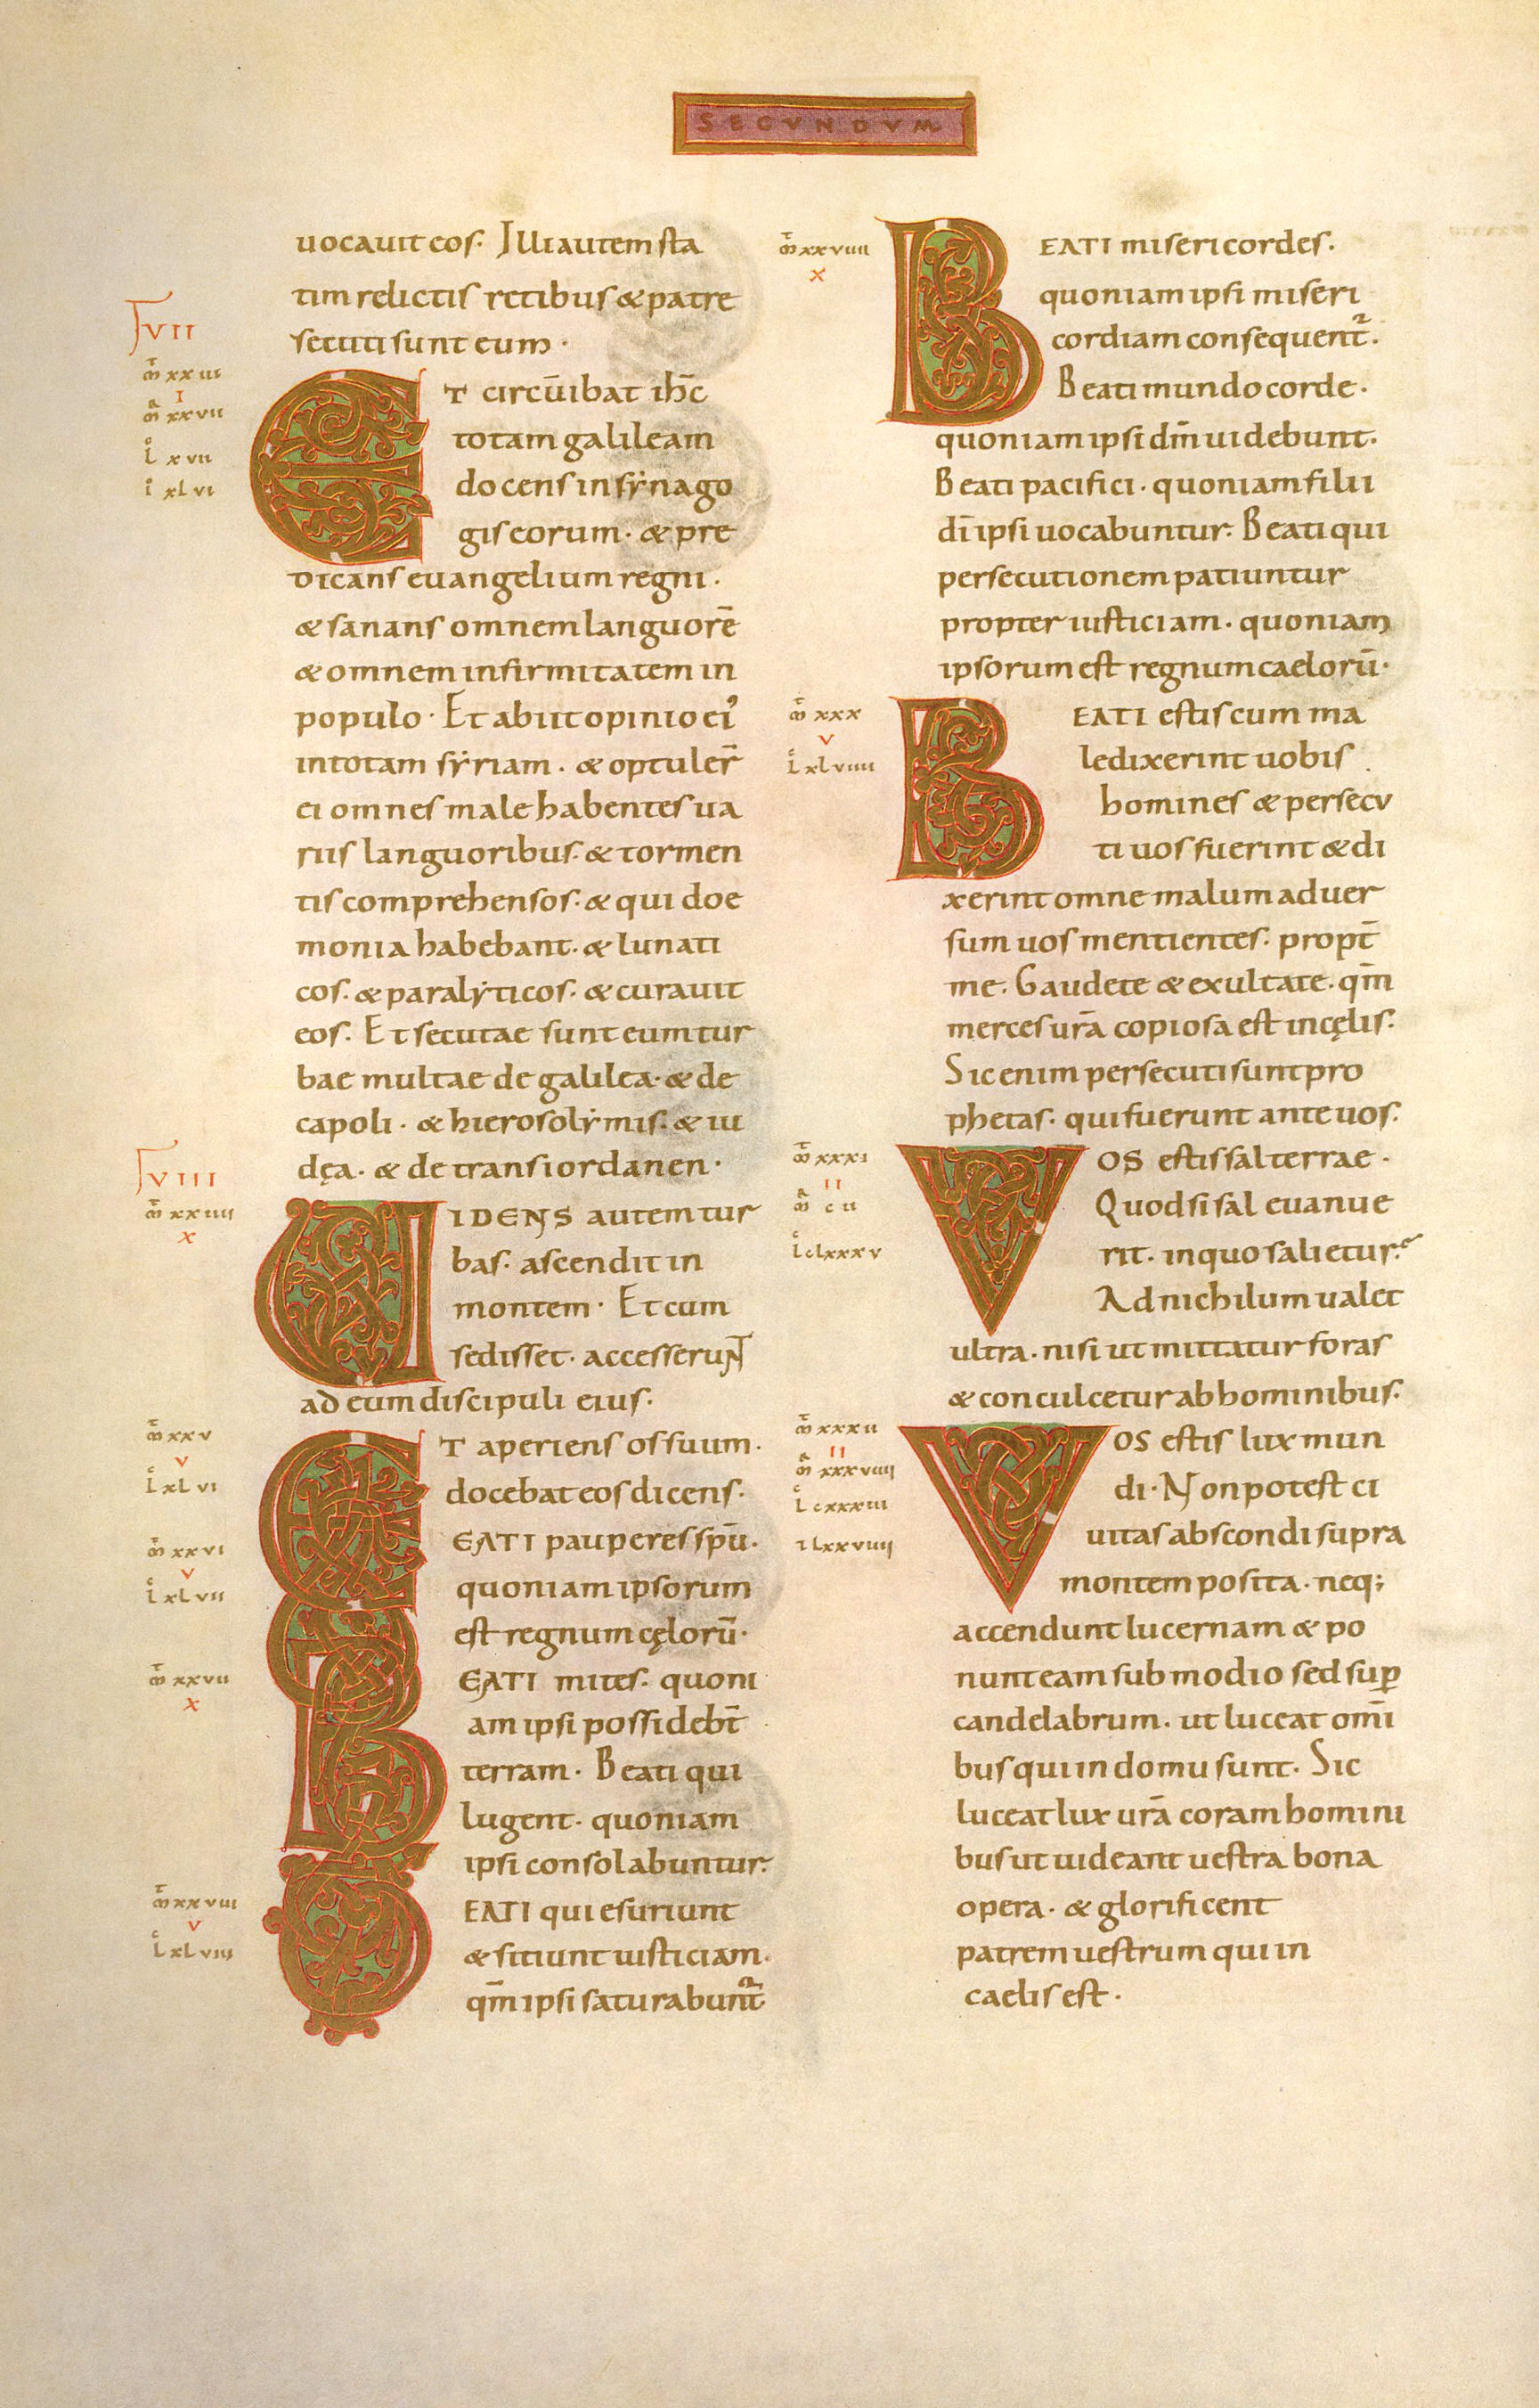 SECUNDUM
uocauit eos. Illi autem sta
tim relictis retibus & patre
secuti sunt eum.
VII
m̄ xxiii
I
m̄ xxvii
l xvii
i xlvi
ET circūibat ih̄c
totam galileam
docens in sẏnago
gis eorum. & pre
dicans euangelium regni.
& sanans omnem languorē
& omnem infirmitatem in
populo. Et abiit opinio ei᾽
in totam sẏriam. & optuler̄
ei omnes male habentes ua
riis languoribus. & tormen
tis comprehensos. & qui doe
monia habebant. & lunati
cos. & paralẏticos. & curauit
eos. Et secutae sunt eum tur
bae multae de galilea. & de
capoli. & hierosolẏmis. & iu
dęa. & de trans iordanen.
VIII
m̄ xxiiii
X
UIDENS autem tur
bas. ascendit in
montem. Et cum
sedisset. accesserunt
ad eum discipuli eius.
m̄ xxv
V
l xlvi
ET aperiens os suum.
docebat eos dicens.
m̄ xxvi
V
l xlvii
BEATI pauperes sp̄u.
quoniam ipsorum
est regnum cęlorū.
m̄ xxvii
X
BEATI mites. quoni
am ipsi possidebt̄
terram. Beati qui
lugent. quoniam
ipsi consolabuntur.
m̄ xxviii
V
l xlviii
BEATI qui esuriunt
& sitiunt iusticiam.
qm̄ ipsi saturabunt᷑
m̄ xxviiii
X
BEATI misericordes.
quoniam ipsi miseri
cordiam consequent᷑.
Beati mundo corde.
quoniam ipsi dm̄ uidebunt.
Beati pacifici. quoniam filii
dī ipsi uocabuntur. Beati qui
persecutionem patiuntur
propter iusticiam. quoniam
ipsorum est regnum caelorū.
m̄ xxx
V
l xlviiii
BEATI estis cum ma
ledixerint uobis
homines & persecu
ti uos fuerint & di
xerint omne malum aduer
sum uos mentientes. propt̄
me. Gaudete & exultate. qm̄
merces ur̄a copiosa est in cęlis.
Sic enim persecuti sunt pro
phetas. qui fuerunt ante uos.
m̄ xxxi
II
m̄ cii
l clxxxv
VOS estis sal terrae.
Quod si sal euanue
rit. in quo salietur?
Ad nichilum ualet
ultra. nisi ut mittatur foras
& conculcetur ab hominibus.
m̄ xxxii
II
m̄ xxxviiii
l cxxxiii
i lxxviiii
VOS estis lux mun
di. Non potest ci
uitas abscondi supra
montem posita. neq;
accendunt lucernam & po
nunt eam sub modio sed suꝑ
candelabrum. ut luceat omī
bus qui in domu sunt. Sic
luceat lux ur̄a coram homini
bus ut uideant uestra bona
opera. & glorificent
patrem uestrum qui in
caelis est.